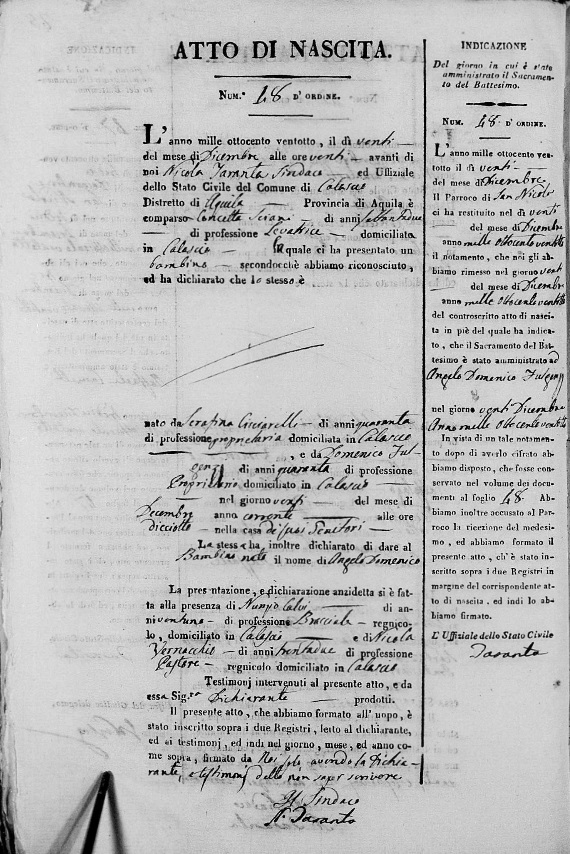 ATTO DI NASCITA.
Num.° 48 d'ordine.
L'anno mille ottocento ventotto, il dì venti
del mese di Dicembre alle ore venti avanti di
noi Nicola Taranta Sindaco ed Uffiziale
dello Stato Civile del Comune di Calascio
Distretto di Aquila Provincia di Aquila è
comparso Concetta di anni settantadue
di professione Levatrice domiciliata
in Calascio la quale ci ha presentato un
bambino secondocchè abbiamo riconosciuto,
ed ha dichiarato che lo stesso è
nato da Serafina Cicciarelli di anni quaranta
di professione proprietaria domiciliata in Calascio
, e da Domenico Ful-
genzj di anni quaranta di professione
Proprietario domiciliato in Calascio
nel giorno venti del mese di
Decembre anno corrente alle ore
dicciotto nella casa de' suoi Genitori
La stessa ha inoltre dichiarato di dare al
Bambino nato il nome di Angelo Domenico
La presentazione, e dichiarazione anzidetta si è fat-
ta alla presenza di Nunzio Calvi di an-
ni ventuno di professione Bracciale regnico-
lo, domiciliato in Calascio e di Nicola
Vernacchio di anni trentadue di professione
Pastore regnicolo domiciliato in Calascio
Testimonj intervenuti al presente atto, e da
essa Sig.ra Dichiarante prodotti.
Il presente atto, che abbiamo formato all'uopo, è
stato inscritto sopra i due Registri, letto al dichiarante,
ed ai testimonj, ed indi nel giorno, mese, ed anno co-
me sopra, firmato da Noi solo avendo la Dichia-
rante, e testimonj detto non saper scrivere
Il Sindaco
N. Taranta
INDICAZIONE
Del giorno in cui è stato
amministrato il Sacramen-
to del Battesimo.
Num. 48 d'ordine.
L'anno mille ottocento ven-
totto il dì venti
del mese di Dicembre
Il Parroco di San Nicola
ci ha restituito nel dì venti
del mese di Dicembre
anno mille ottocento ventotto
il notamento, che noi gli ab-
biamo rimesso nel giorno venti
del mese di Dicembre
anno mille ottocento ventotto
del controscritto atto di nasci-
ta in piè del quale ha indica-
to, che il Sacramento del Bat-
tesimo è stato amministrato ad
Angelo Domenico Fulgenzj
nel giorno venti Dicembre
Anno mille ottocento ventotto
In vista di un tale notamen-
to dopo di averlo cifrato ab-
biamo disposto, che fosse con-
servato nel volume dei docu-
menti al foglio 48 Ab-
biamo inoltre accusato al Par-
roco la ricezione del medesi-
mo, ed abbiamo formato il
presente atto, ch'è stato in-
scritto sopra i due Registri in
margine del corrispondente at-
to di nascita, ed indi lo ab-
biamo firmato.
L'Uffiziale dello Stato Civile
Taranta